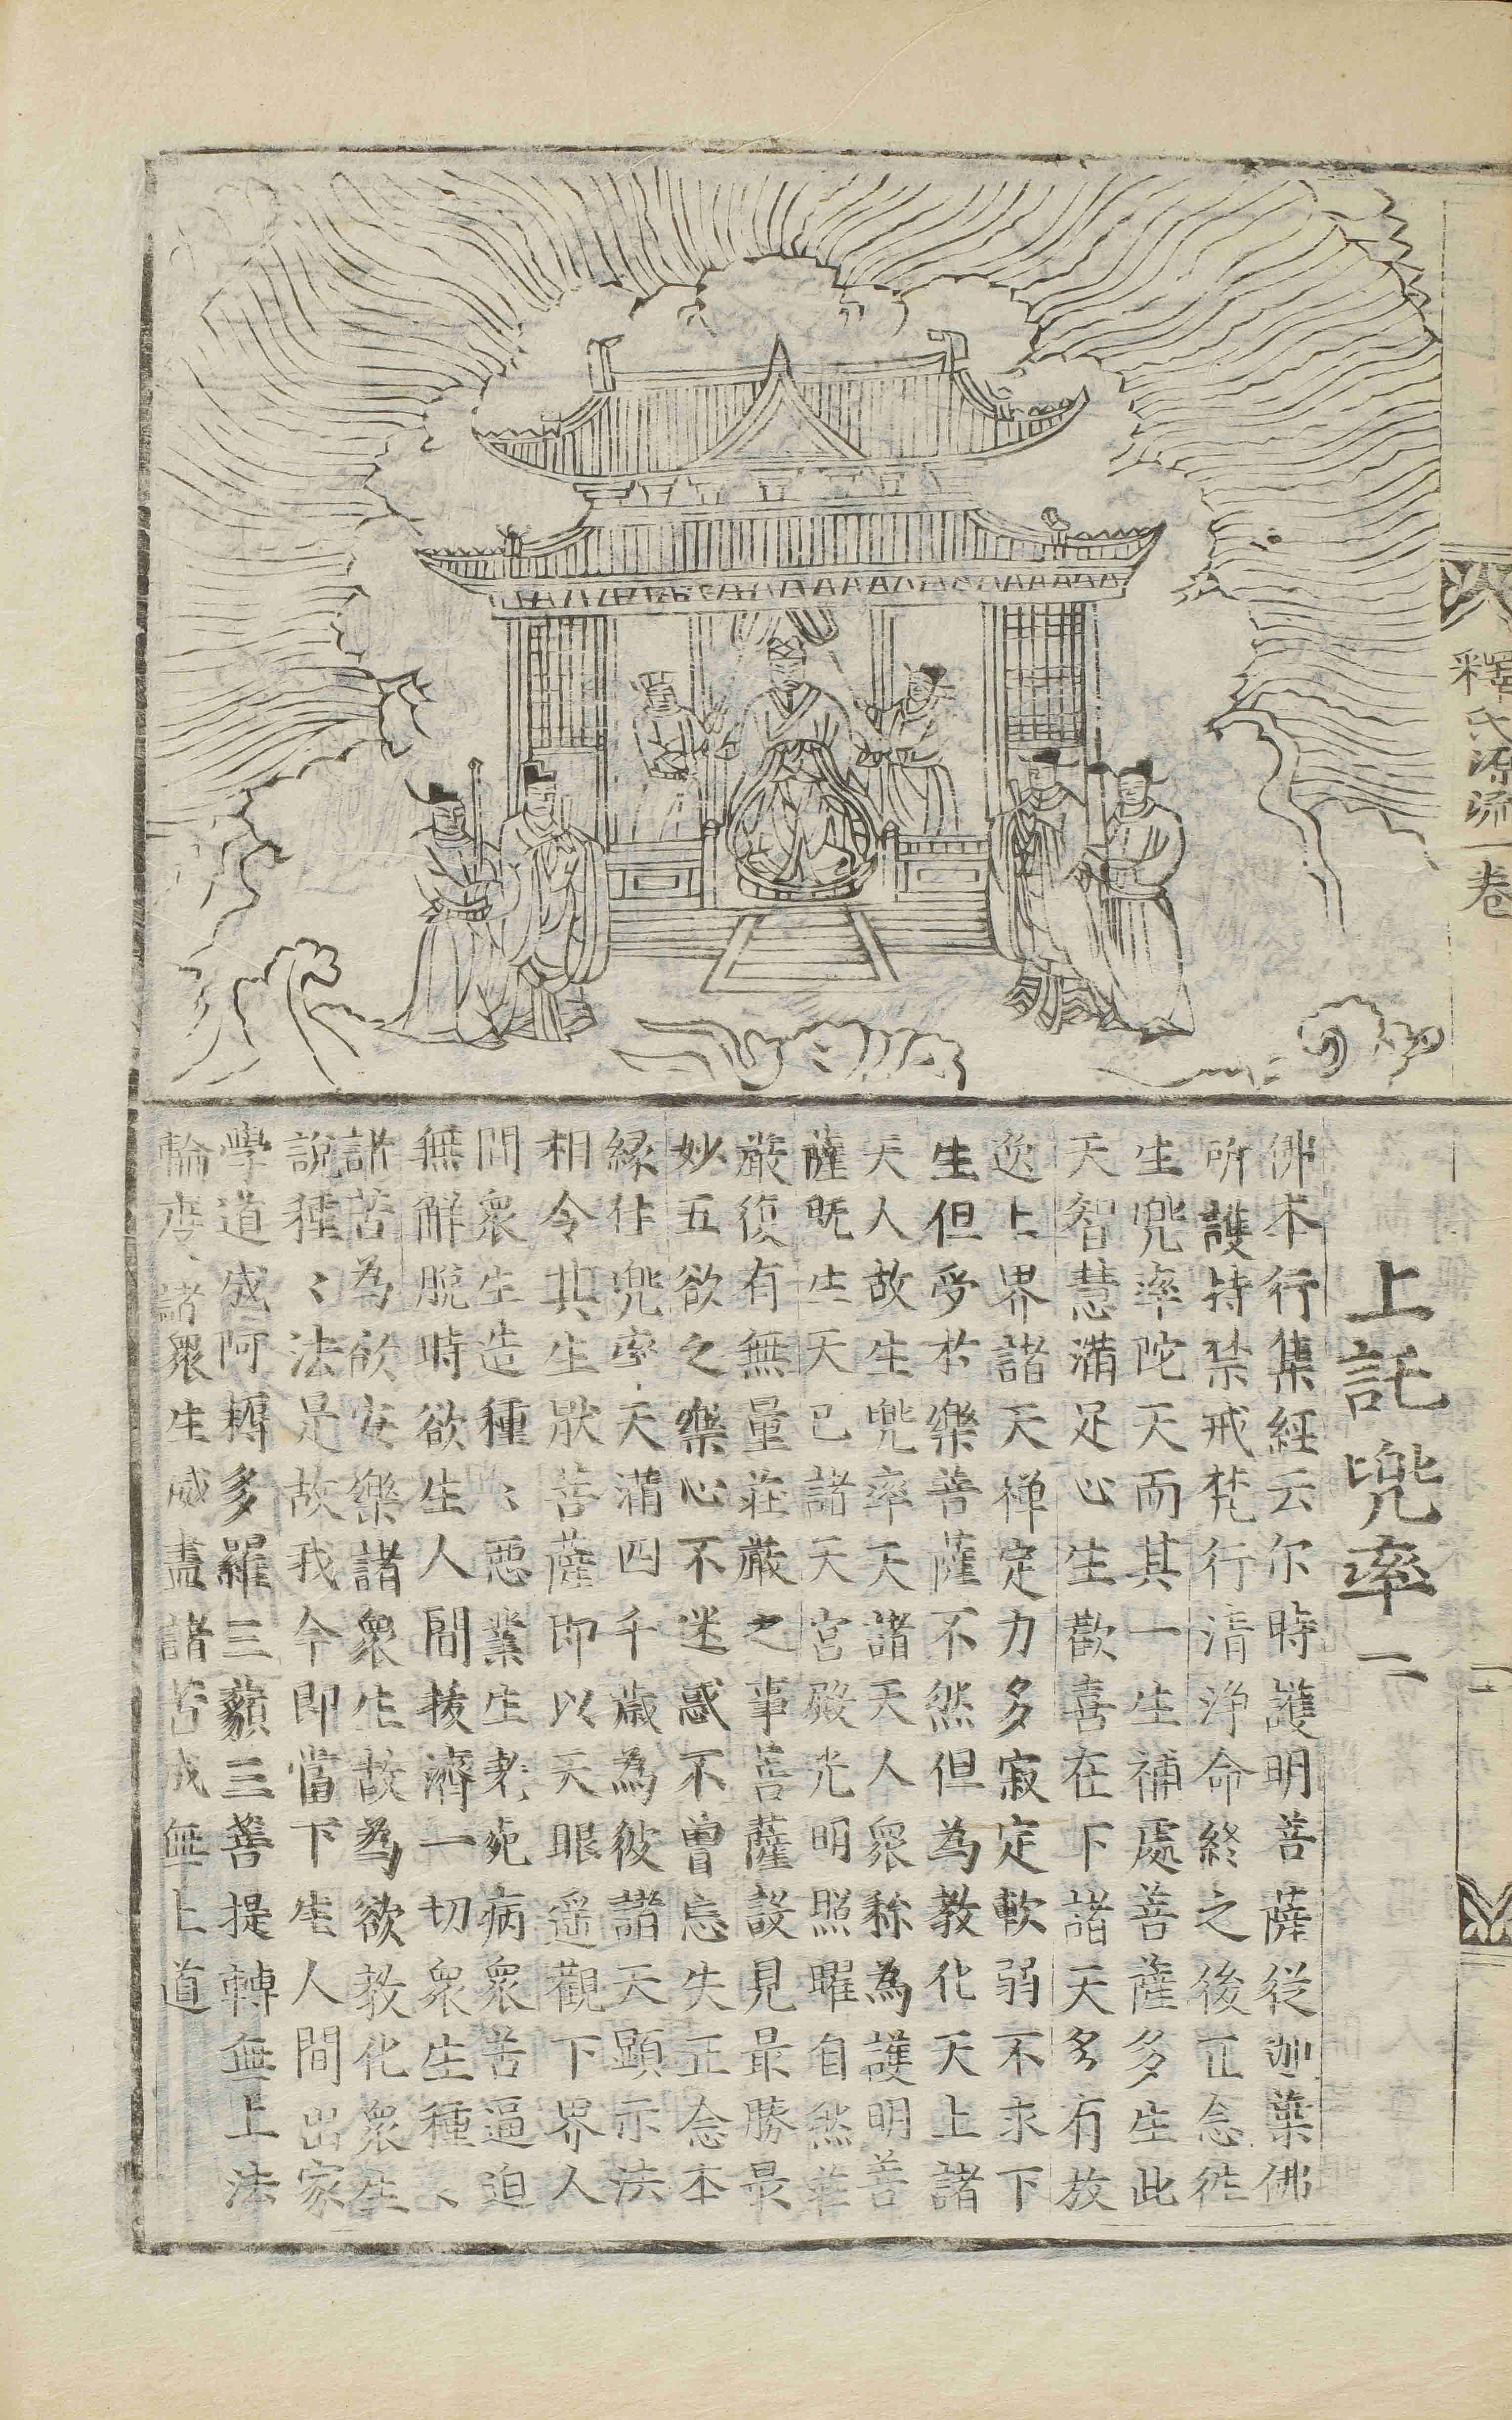 釋氏源流一卷
二
上託兜率二
佛本行集經云尔時護明菩薩從迦葉佛
所護持禁戒梵行清淨命終之後正念徃
生兜率陀天而其一生補處菩薩多生此
天智慧滿足心生歡喜在下諸天多有放
逸上界諸天禅定力多寂定軟弱不求下
生但受於樂菩薩不然但為教化天上諸
天人故生兜率天諸天人衆稱為護明菩
薩既生天已諸天宮殿光明照曜自然莊
嚴復有無量莊嚴之事菩薩設見最勝最
妙五欲之樂心不迷惑不曾忘失正念本
緣往兜率天滿四千歲為彼諸天顯示法
相令其生猒菩薩即以天眼遥觀下界人
間衆生造種〻惡業生老死病衆苦逼迫
無解脫時欲生人間拔濟一切衆生種〻
諸苦為欲安樂諸衆生故為欲教化衆生
說種〻法是故我今即當下生人間出家
學道成阿耨多羅三藐三菩提轉無上法
輪度諸衆生咸盡諸苦成無上道